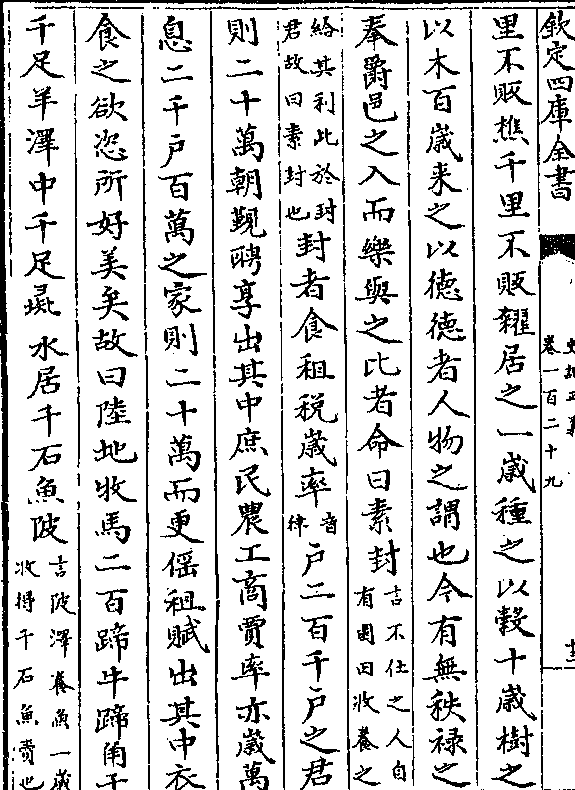 欽定四庫全書
史記正義
卷一百二十九
十三
里不販樵千里不販糴居之一歲種之以穀十歲樹之
以木百歲来之以德德者人物之謂也今有無秩禄之
奉爵邑之入而樂與之比者命曰素封
言不仕之人自
有園田收養之
給其利比於封
君故曰素封也
封者食租稅歲率
音
律
户二百千户之君
則二十萬朝覲聘享出其中庶民農工商賈率亦歲萬
息二千户百萬之家則二十萬而更徭租賦出其中衣
食之欲恣所好美矣故曰陸地牧馬二百蹄牛蹄角千
千足羊澤中千足彘水居千石魚陂
言陂澤養魚一歲
收得千石魚賣也